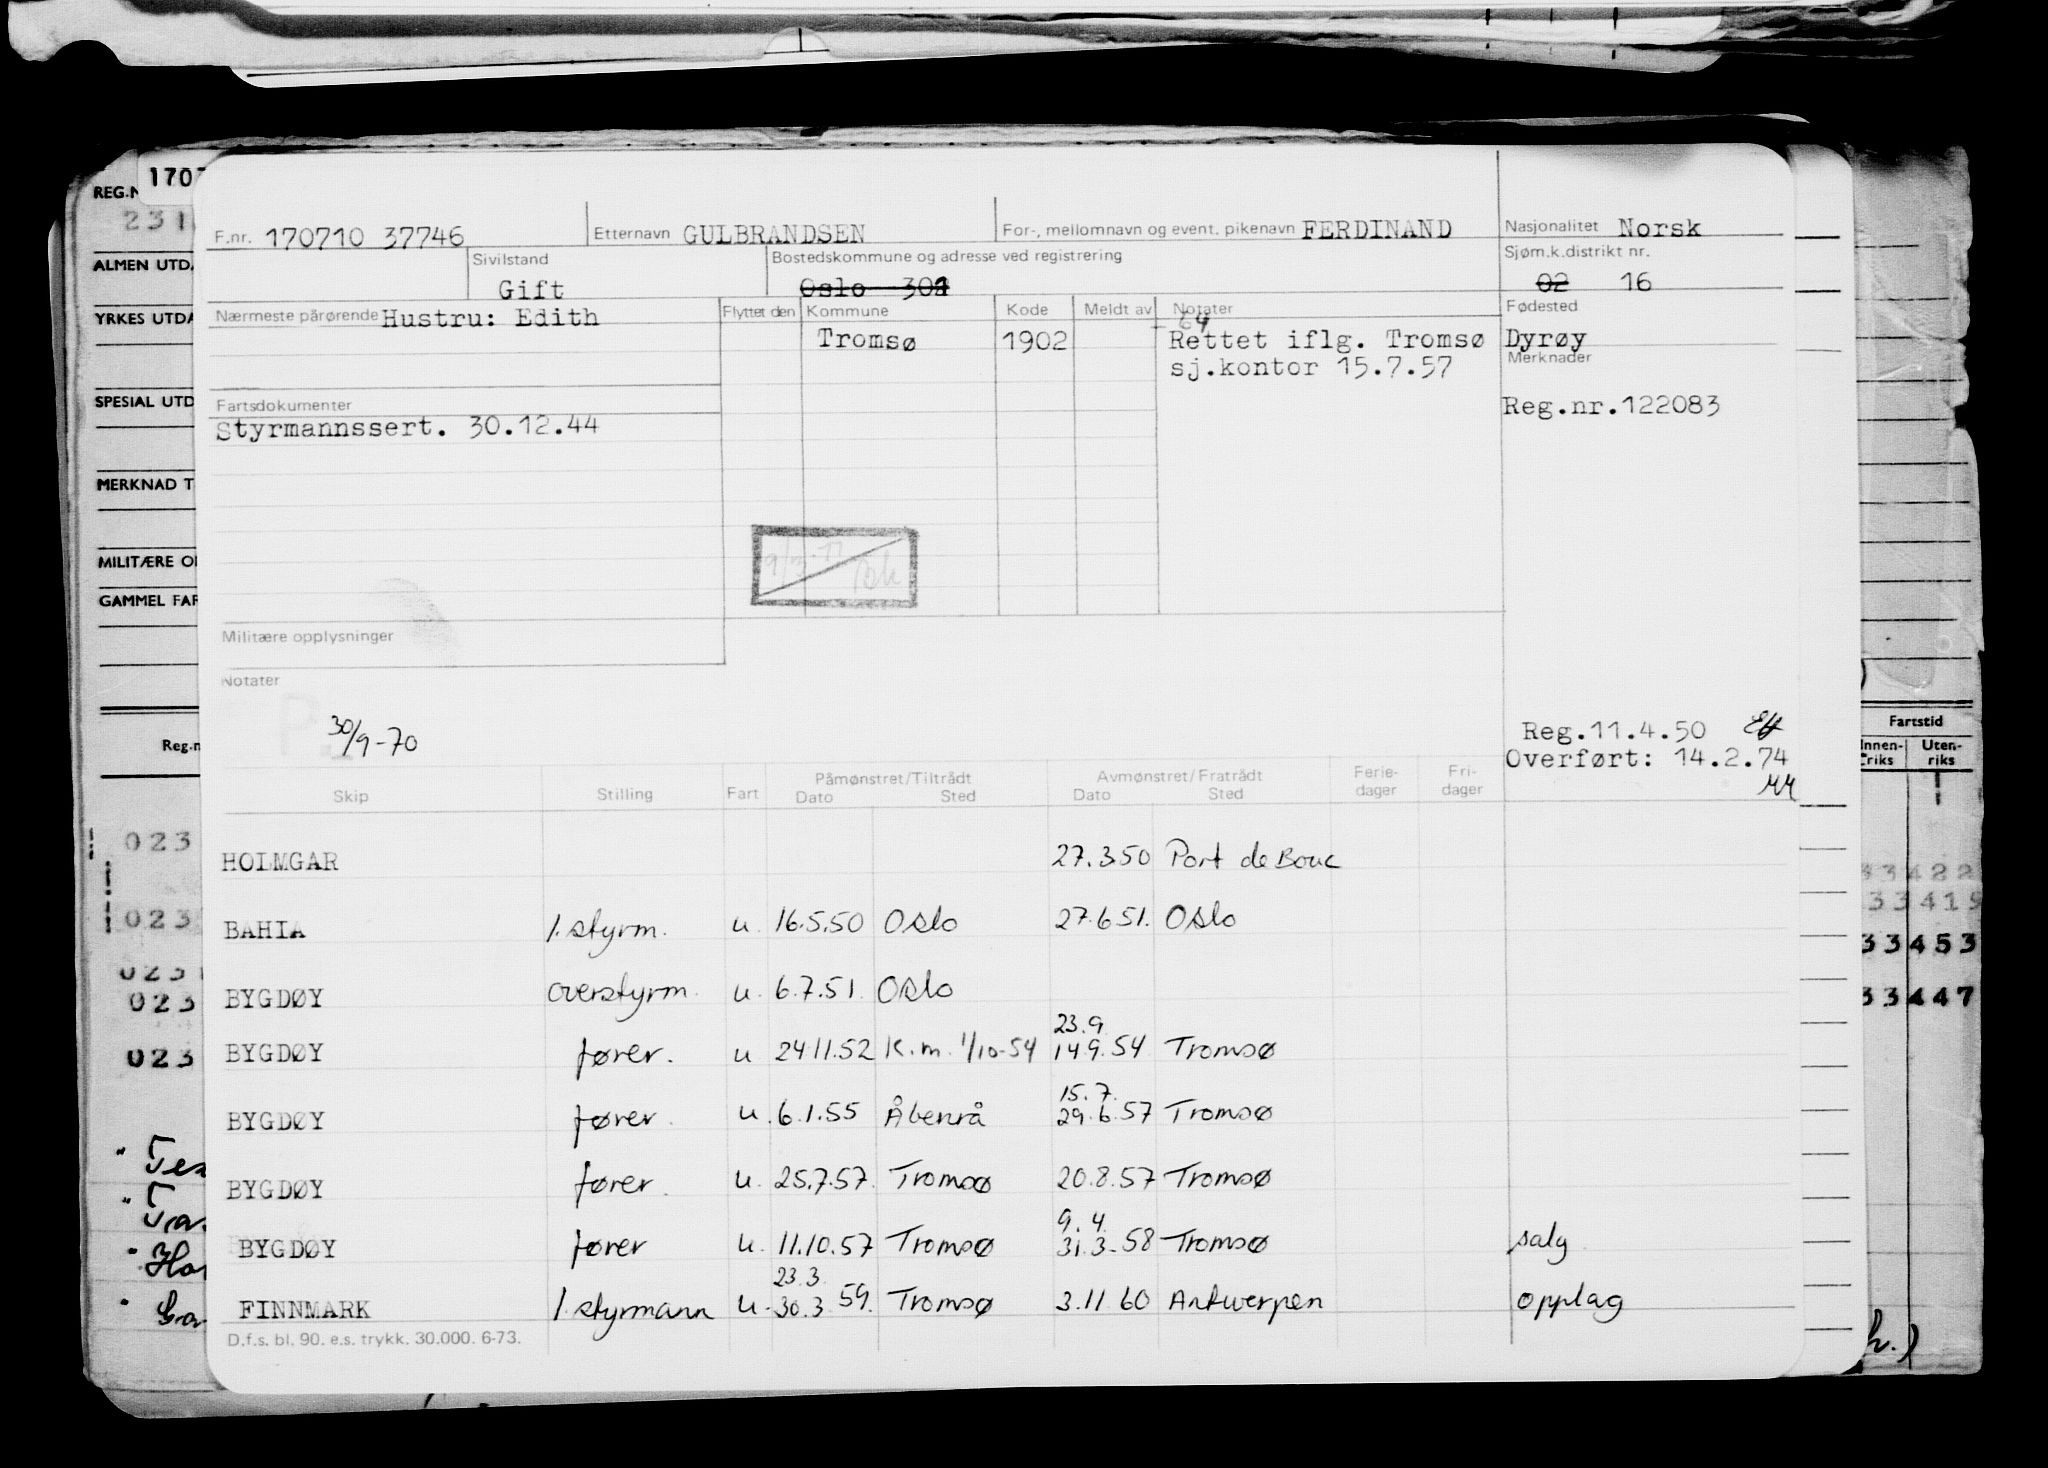 1707
REG.N
231
ALMEN UTDA
YRKES UTDA
SPESIAL UTD
MERKNAD T
MILITÆRE O
GAMMEL FAR
Reg.n
023
023
023
023
023
" Tes
" Ta
" Ha
" Ga
F.nr. 170710 37746 Etternavn GULBRANDSEN For-, mellomnavn og event. pikenavn FERDINAND Nasjonalitet Norsk
Sivilstand Gift
Bostedskommune og adresse ved registrering Oslo 301
Sjøm.k.distrikt nr. 02 16
Nærmeste pårørende Hustru: Edith
Flyttet den Kommune Kode Meldt av Notater Fødested
- 64
Tromsø 1902 Rettet iflg. Tromsø Dyrøy
sj.kontor 15.7.57 Merknader
Fartsdokumenter Reg.nr.122083
Styrmannssert. 30.12.44
9/3-77
Militære opplysninger
Notater
30/9-70
Reg.11.4.50
Overført: 14.2.74
Skip Stilling Fart Påmønstret/Tiltrådt Dato Sted Avmønstret/Fratrådt Dato Sted Ferie-dager Fri-dager
HOLMGAR 27.3.50 Port de Bouc
BAHIA 1. styrm. u. 16.5.50 Oslo 27.6.51. Oslo
BYGDØY overstyrm. u. 6.7.51. Oslo
23.9
BYGDØY fører. u 24.11.52 K.m. 1/10-54 14.9.54 Tromsø
15.7.
BYGDØY fører. u. 6.1.55 Åbenrå 29.6.57 Tromsø
BYGDØY fører. u. 25.7.57. Tromsø 20.8.57 Tromsø
9.4.
BYGDØY fører u. 11.10.57 Tromsø 31.3-58 Tromsø salg
23.3.
FINNMARK 1. styrmann u. 30.3.59. Tromsø 3.11.60 Antwerpen opplag
D.f.s. bl. 90. e.s. trykk. 30.000. 6-73.
Fartstid
Innen-riks Uten-riks
33422
33419
33453
33447